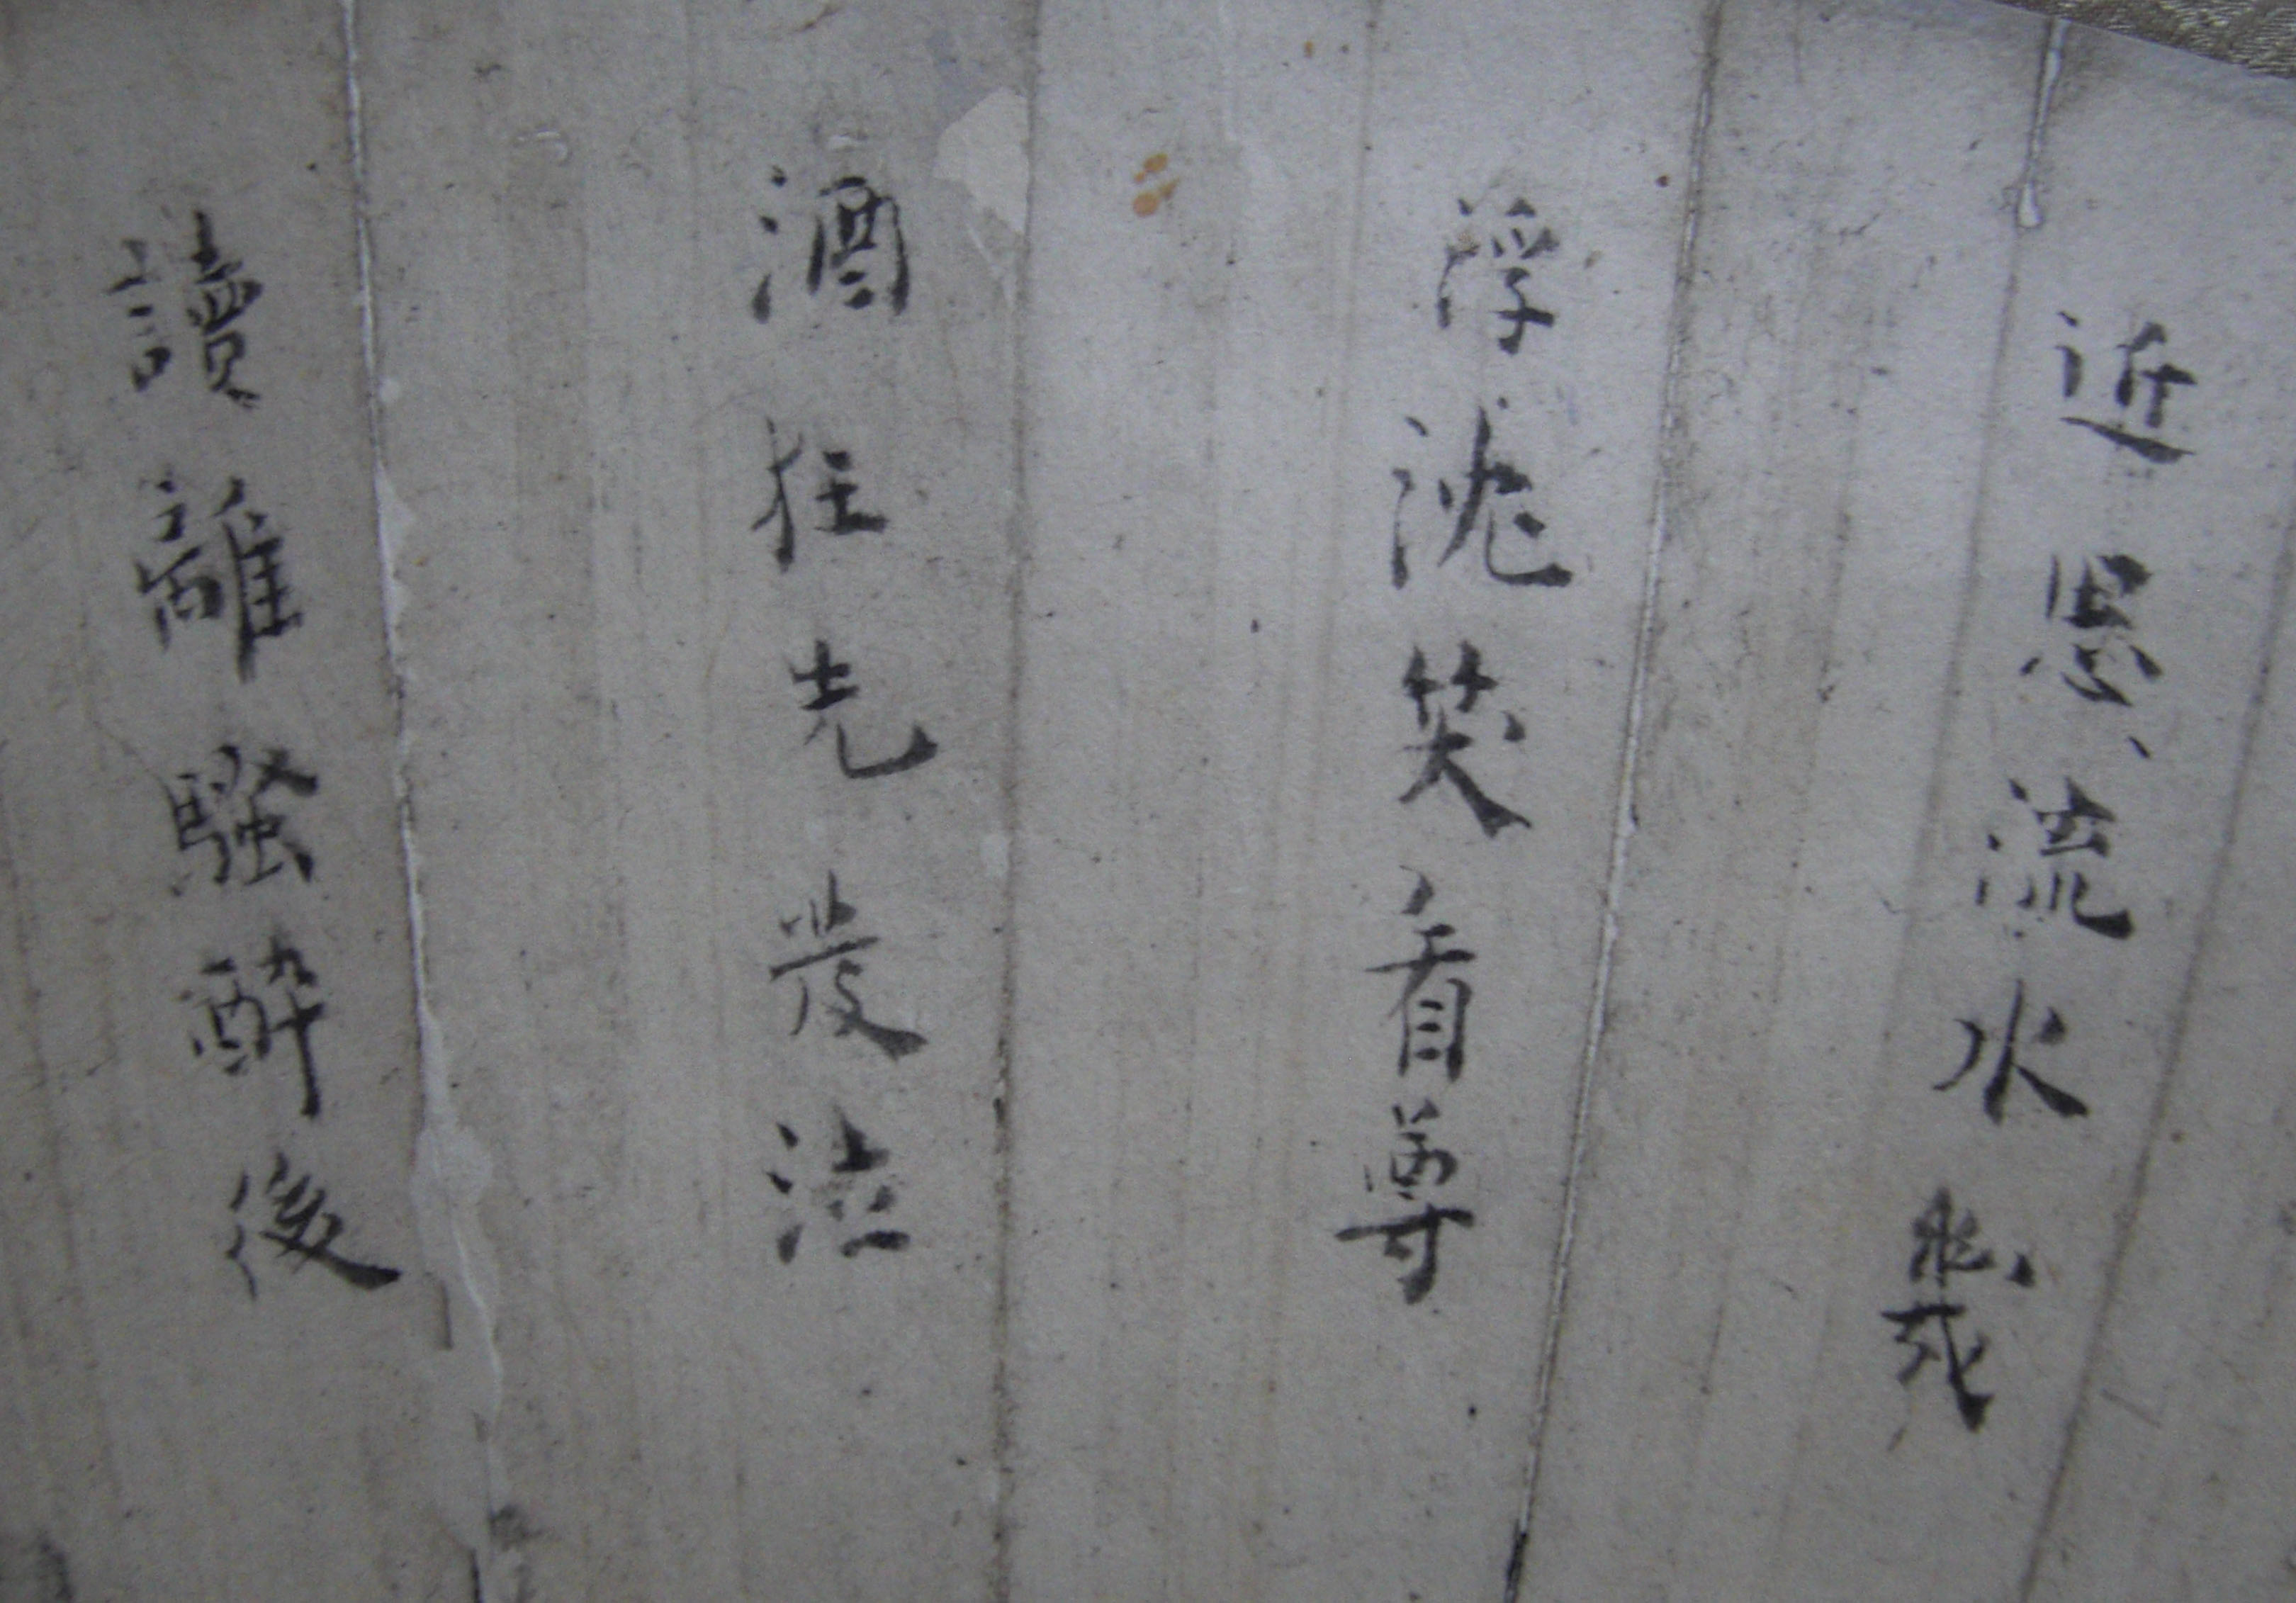 近思流水幾
浮沈笑看尊
酒狂先發泣
讀離騷醉後